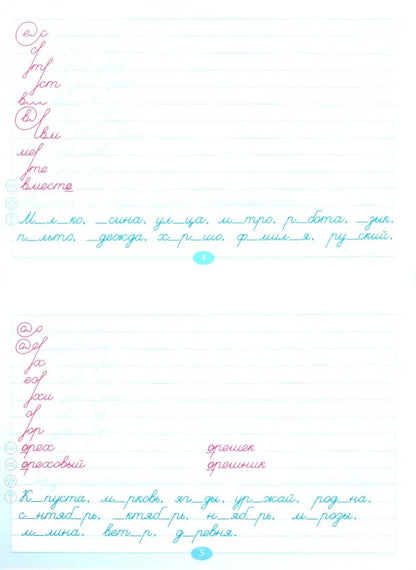 е с
ст
в
вм
ме
те
вместе
М_л_ко, _сина, ул_ца, м_тро, р_бота, _зык,
п_льто, _дежда, х_р_шо, ф_мил_я, ру_ский.
4
а о
х
ор
орех орешек
ореховый орешник
К_пуста, м_рковь, яг_ды, ур_жай, род_на,
с_нтяб_рь, _ктяб_рь, н_яб_рь, м_розы,
м_лина, вет_р, д_ревня.
5